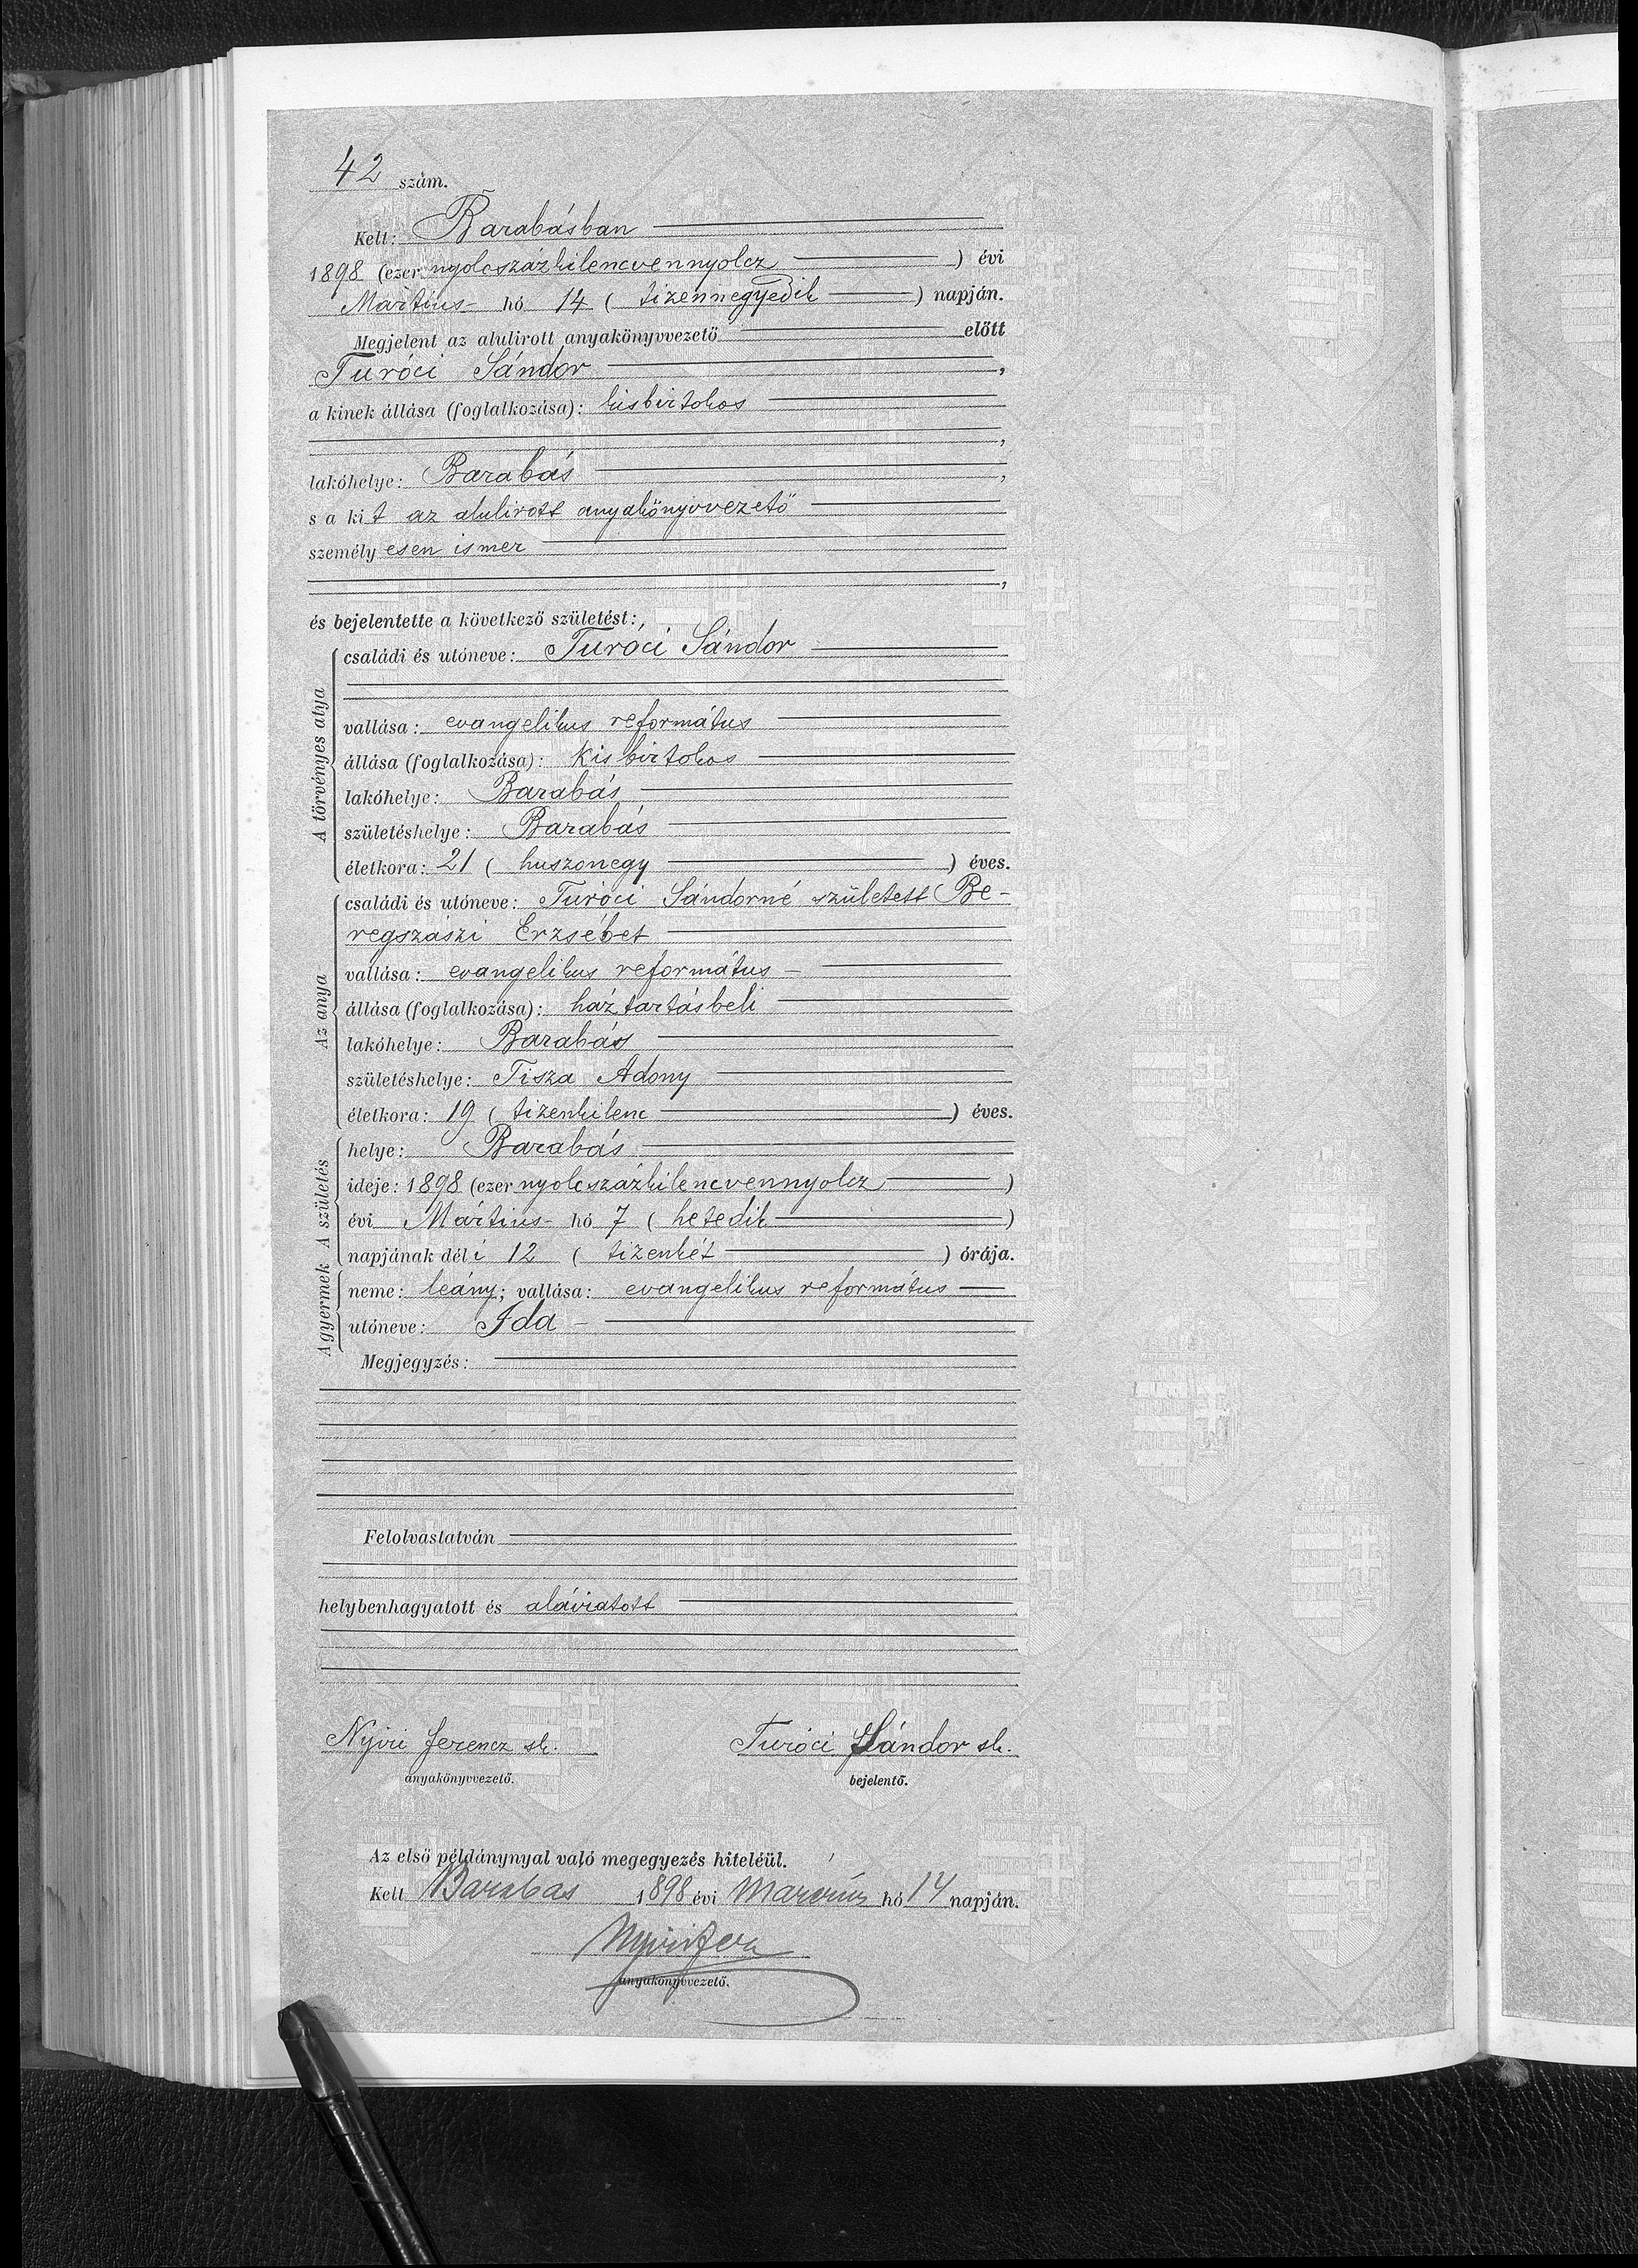 42 szám.
Kelt: Barabásban
1898 (ezer nyolcszázkilencvennyolcz) évi
Martius hó 14 (tizennegyedik) napján.
Megjelent az alulirott anyakönyvvezető előtt
Turóci Sándor,
a kinek állása (foglalkozása): kisbirtokos
,
lakóhelye: Barabás,
s a kit az alulirott anyakönyvvezető
személy esen ismer
,
és bejelentette a következő születést:
A törvényes atya
családi és utóneve: Turóci Sándor
vallása: evangelikus református
állása (foglalkozása): kisbirtokos
lakóhelye: Barabás
születéshelye: Barabás
életkora: 21 (huszonegy) éves.
Az anya
családi és utóneve: Turóci Sándorné született Be-
regszászi Erzsébet
vallása: evangelikus református
állása (foglalkozása): háztartásbeli
lakóhelye: Barabás
születéshelye: Tisza Adony
életkora: 19 (tizenkilenc) éves.
A születés
helye: Barabás
ideje: 1898 (ezer nyolcszázkilencvennyolcz)
évi Mártius hó 7 (hetedik)
napjának déli 12 (tizenkét) órája.
A gyermek
neme: leány; vallása: evangelikus református
utóneve: Ida
Megjegyzés:
Felolvastatván
helybenhagyatott és aláiratott
Nyiri Ferencz sk. Turóci Sándor sk.
anyakönyvvezető. bejelentő.
Az első példánynyal való megegyezés hiteléül.
Kelt Barabas 1898 évi Marcius hó 14 napján.
anyakönyvvezető.